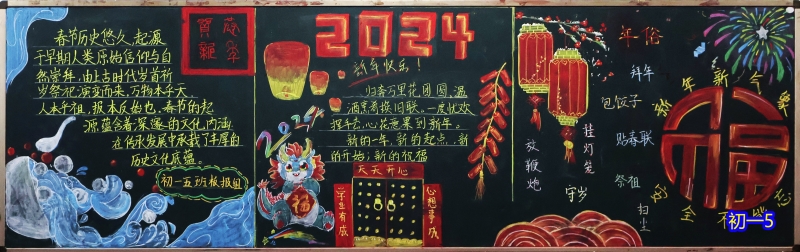 春节历史悠久,起源
于早期人类原始信仰与自
然崇拜,由上古时代岁首祈
岁祭祀演变而来,万物本乎天,
人本乎祖,报本反始也,春节的起
源蕴含着深邃的文化内涵
在传承发展中承载了丰厚的
历史文化底蕴。
初一五班板报组
贺岁
龙年
2024
新年快乐!
归奔万里花团圆,温
酒煮肴换旧联。一度优欢
新的一年,新的起点,新
的开始;新的祝福
2024
天天开心
心想事成
福
年俗
拜年
包饺子
贴春联
祭祖
扫尘
守岁
挂灯笼
放鞭炮
新年新气象
福
安全不能忘
初一5